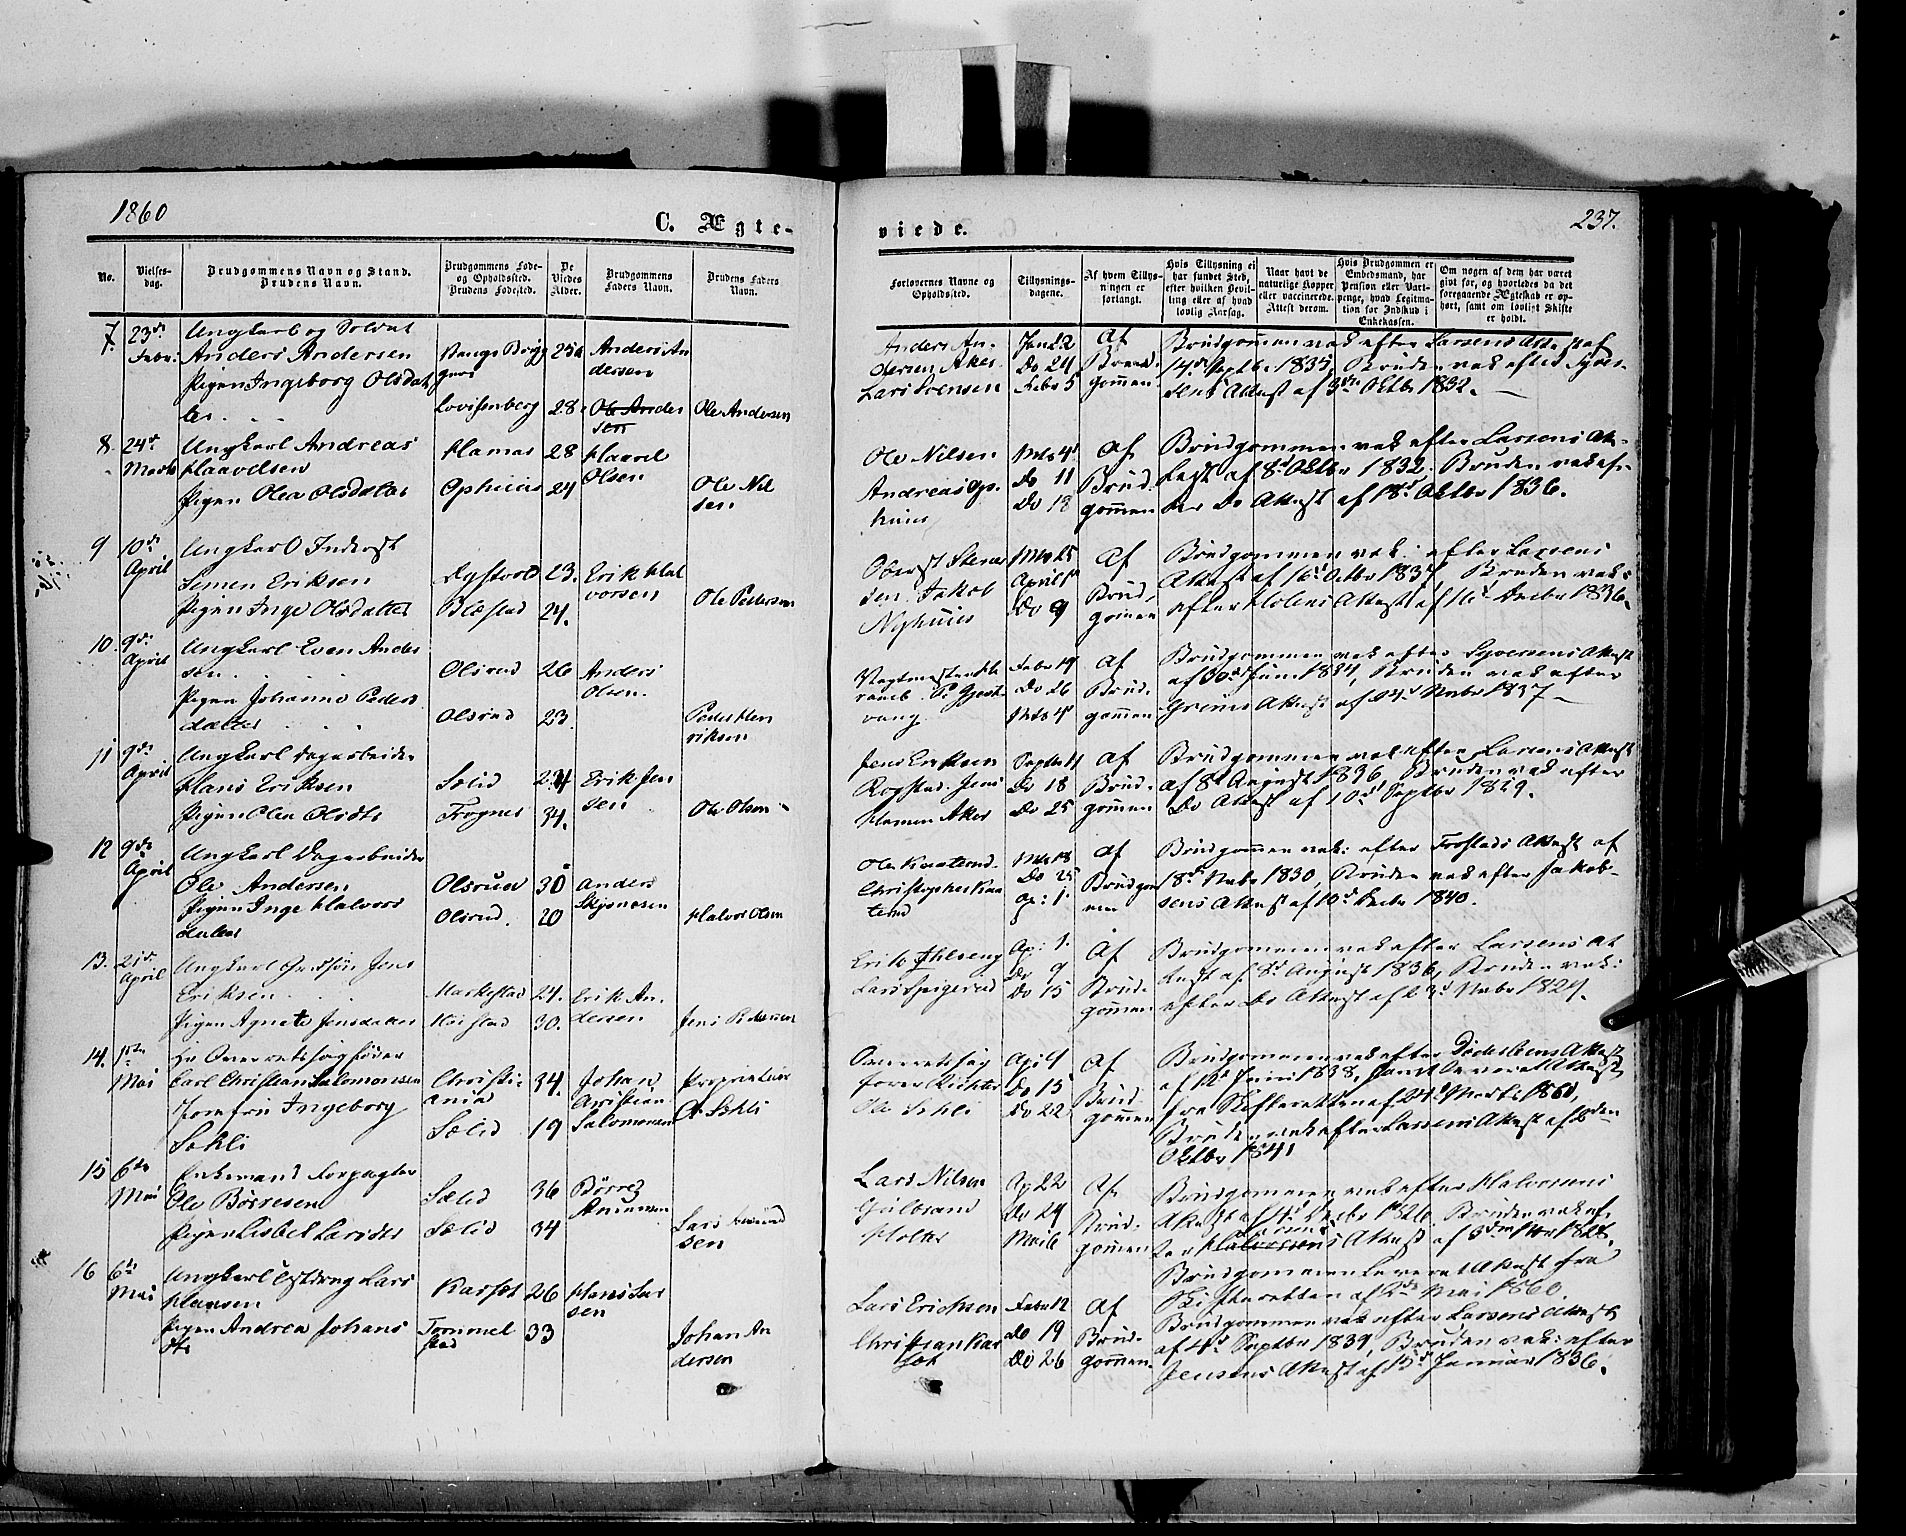 1860
C. Ægte-
viede.
237.
No.
Vielses-
dag.
Brudgommens Navn og Stand.
Brudens Navn.
Brudgommens Føde-
og Opholdssted.
Brudens Fødested.
De
Viedes
Alder.
Brudgommens
Faders Navn.
Brudens Faders
Navn.
Forlovernes Navne og
Opholdssted.
Tillysnings-
dagene.
Af hvem Tillys-
ningen er
forlangt.
Hvis Tillysning ei
har fundet Sted,
efter hvilken Bevil-
ling eller af hvad
lovlig Aarsag.
Naar havt de
naturlige Kopper
eller vaccinerede.
Attest derom.
Hvis Brudgommen er
Embedsmand, har
Pension eller Vart-
penge, hvad Legitima-
tion for Indskud i
Enkekassen.
Om nogen af dem har været
givt før, og hvorledes da det
foregaaende Ægteskab er op-
hørt, samt om lovligt Skifte
er holdt.
7. 23de Febr:
Ungkarl og Soldat
Anders Andersen
Pigen Ingeborg Olsdat
ter
Lovisenberg
25
28
Anders An
dersen
Ole Ander
sen
Ole Andersen
Anders An-
dersen Aker
Lars Svensen
Jan 22
Do 29
Febr 5
Af
Brud
gommen
Brudgommen vak efter Larsens Attest af
14de Septbr 1835, Bruden vak efter Syver
sens Attest af 3die Oktbr 1832.
8. 24de Marts
Ungkarl Andreas
Haavelsen
Pigen Olea Olsdatter
Hamar
Ophuus
28
24
Haavel
Olsen
Ole Nil
sen
Ole Nilsen
Andreas Op-
huus
Mts 4de
Do 11
Do 18
Af
Brud
gommen
Brudgommen vak efter Larsens At-
test af 8de Oktbr 1832. Bruden vak ef-
ter Do Attest af 18de Oktbr 1836.
9 10de April
Ungkarl Inderst
Simen Eriksen
Pigen Inge Olsdatter
Dystvold
Blæstad
23.
24.
Erik Hal
vorsen
Ole Pedersen
Oberst Stens
sen. Jakob
Nyhuus
Mts 25
April 1st
Do 9
Af
Brud
gommen
Brudgommen vak: efter Larsens
Attest af 16de Octbr 1837, Bruden vak:
efter Holens Attest af 16de Decbr 1836.
10. 9de April
Ungkarl Even Ander
sen
Pigen Johanne Peders
datter
Olsrud
Olsrud
26
23.
Anders
Olsen.
Peder Hen
riksen
Febr 19
Do 26
Mts 4de
Af
Brud
gommen
Brudgommen vak efter Syversens Attest
af 30de Juni 1834, Bruden vak efter
Grems Attest af 24de Novbr 1837
11 9de April
Ungkarl Dagarbeider
Hans Eriksen
Pigen Olea Olsdtr
Sælid
Frogner
24
34.
Erik Jen
sen
Ole Olsen
Jens Eriksen
Rogstad. Jens
Hamar Aker
Septbr 11
Do 18
Do 25
Af
Brud-
gommen
Brudgommen vak efter Larsens Attest
af 8de August 1836, Bruden vak efter
Do Attest af 10de Septbr 1829.
12 9de April
Ungkarl Dagarbeider
Ole Andersen
Pigen Inge Halvors
datter
Olsrud
Olsrud.
30
20
Anders
Halvor Olsen
Ole Kvaterud
Christopher Kva
terud
Mts 18
Do 25
Ap: 1.
Af
Brudgom
men
Brudgommen vak: efter Frostads Attest af
18de Novbr 1830, Bruden vak efter Jakob-
sens Attest af 10de Decbr 1840.
13. 21de April
Ungkarl Grdsøn Jens
Eriksen
Pigen Agnete Jensdatter
Markestad
Kaistad
24.
30.
Erik An-
dersen
Jens Pedersen
Erik Ihleseng
Lars Spigerud
Ap: 1.
Do 9
Do 15
Af
Brud-
gommen
Brudgommen vak efter Larsens At
test af 8de August 1836, Bruden vak:
efter Do Attest af 23de Novbr 1829.
14. 1ste Mai
Hr Overretssagfører
Carl Christian Salomonsen
Jomfru Ingeborg
Sehli
Christi-
ania
Sælid
34.
19
Johan
Christian
Salomonsen
Proprietær
O Sehli
Overretssag
fører Richter
Ole Sehli
Api 9
Do 15
Do 22
Af
Brud-
gommen
Brudgommen vak efter Døderleins Attest
af 12te Juni 1838, samt leveret Attest
fra Skifteretten af 24de Marts 1860,
Bruden vak efter Larsens Attest af 6den
Oktbr 1841
15 6te Mai
Enkemand Forpagter
Ole Børresen
Pigen Lisbet Larsdtr
Sælid
Sælid
36
34
Børre
Amunsen
Lars Amund
sen
Lars Nilsen
Gulbrand
Holter
Ap 22
Do 29
Mai 6
Af
Brud-
gommen
Brudgommen vak efter Halvorsens
Attest af 4de Decbr 1826. Bruden vak ef-
ter Halvorsens Larsens Attest af 5den Novbr 1828.
Brudgommen leveret Attest fra
Skifteretten af 2den Mai 1860.
16 6te Mai
Ungkarl Gstdreng Lars
Hansen
Pigen Andrea Johans
dtr
Karset
Trommel
stad
26
33
Hans Lar
sen
Johan An
dersen
Lars Ericksen
Christian Kar
set
Febr 12
Do 19
Do 26
Af
Brud-
gommen
Brudgommen vak efter Larsens Attest
af 4de Septbr 1839, Bruden vak: efter
Jensens Attest af 15de Januar 1836.